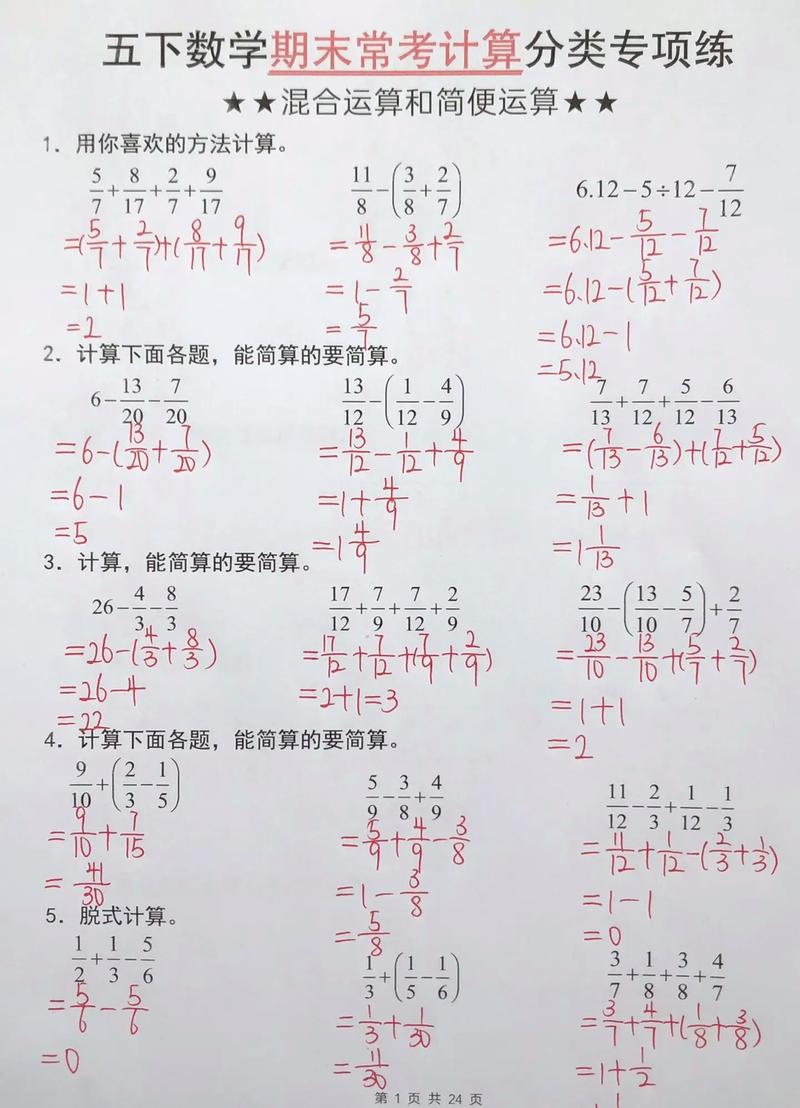 五下数学期末常考计算分类专项练
★★混合运算和简便运算★★
1. 用你喜欢的方法计算。
5/7+8/17+2/7+9/17
=(5/7+2/7)+(8/17+9/17)
=1+1
=2
11/8-(3/8+2/7)
=11/8-3/8+2/7
=1-2/7
=5/7
6.12-5÷12-7/12
=6.12-5/12-7/12
=6.12-(5/12+7/12)
=6.12-1
=5.12
2. 计算下面各题，能简算的要简算。
6-13/20-7/20
=6-(13/20+7/20)
=6-1
=5
13/12-(1/12-4/9)
=13/12-1/12+4/9
=1+4/9
=1 4/9
7/13+7/12+5/12-6/13
=(7/13-6/13)+(7/12+5/12)
=1/13+1
=1 1/13
3. 计算，能简算的要简算。
26-4/3-8/3
=26-(4/3+8/3)
=26-4
=22
17/12+7/9+7/12+2/9
=17/12+7/12+(7/9+2/9)
=2+1=3
23/10-(13/10-5/7)+2/7
=23/10-13/10+(5/7+2/7)
=1+1
=2
4. 计算下面各题，能简算的要简算。
9/10+(2/3-1/5)
=9/10+7/15
=41/30
5/9-3/8+4/9
=5/9+4/9-3/8
=1-3/8
=5/8
11/12-2/3+1/12-1/3
=11/12+1/12-(2/3+1/3)
=1-1
=0
5. 脱式计算。
1/2+1/3-5/6
=5/6-5/6
=0
1/3+(1/5-1/6)
=1/3+1/30
=11/30
3/7+1/8+3/8+4/7
=3/7+4/7+(1/8+3/8)
=1+1/2
第 1 页 共 24 页